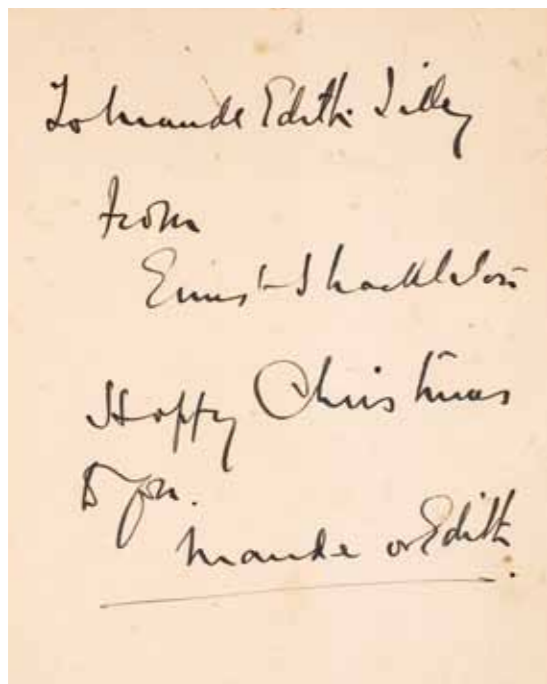 To Maude Edith Tilley
from
Ernest Shackleton
Happy Christmas
to you.
Maude or Edith.